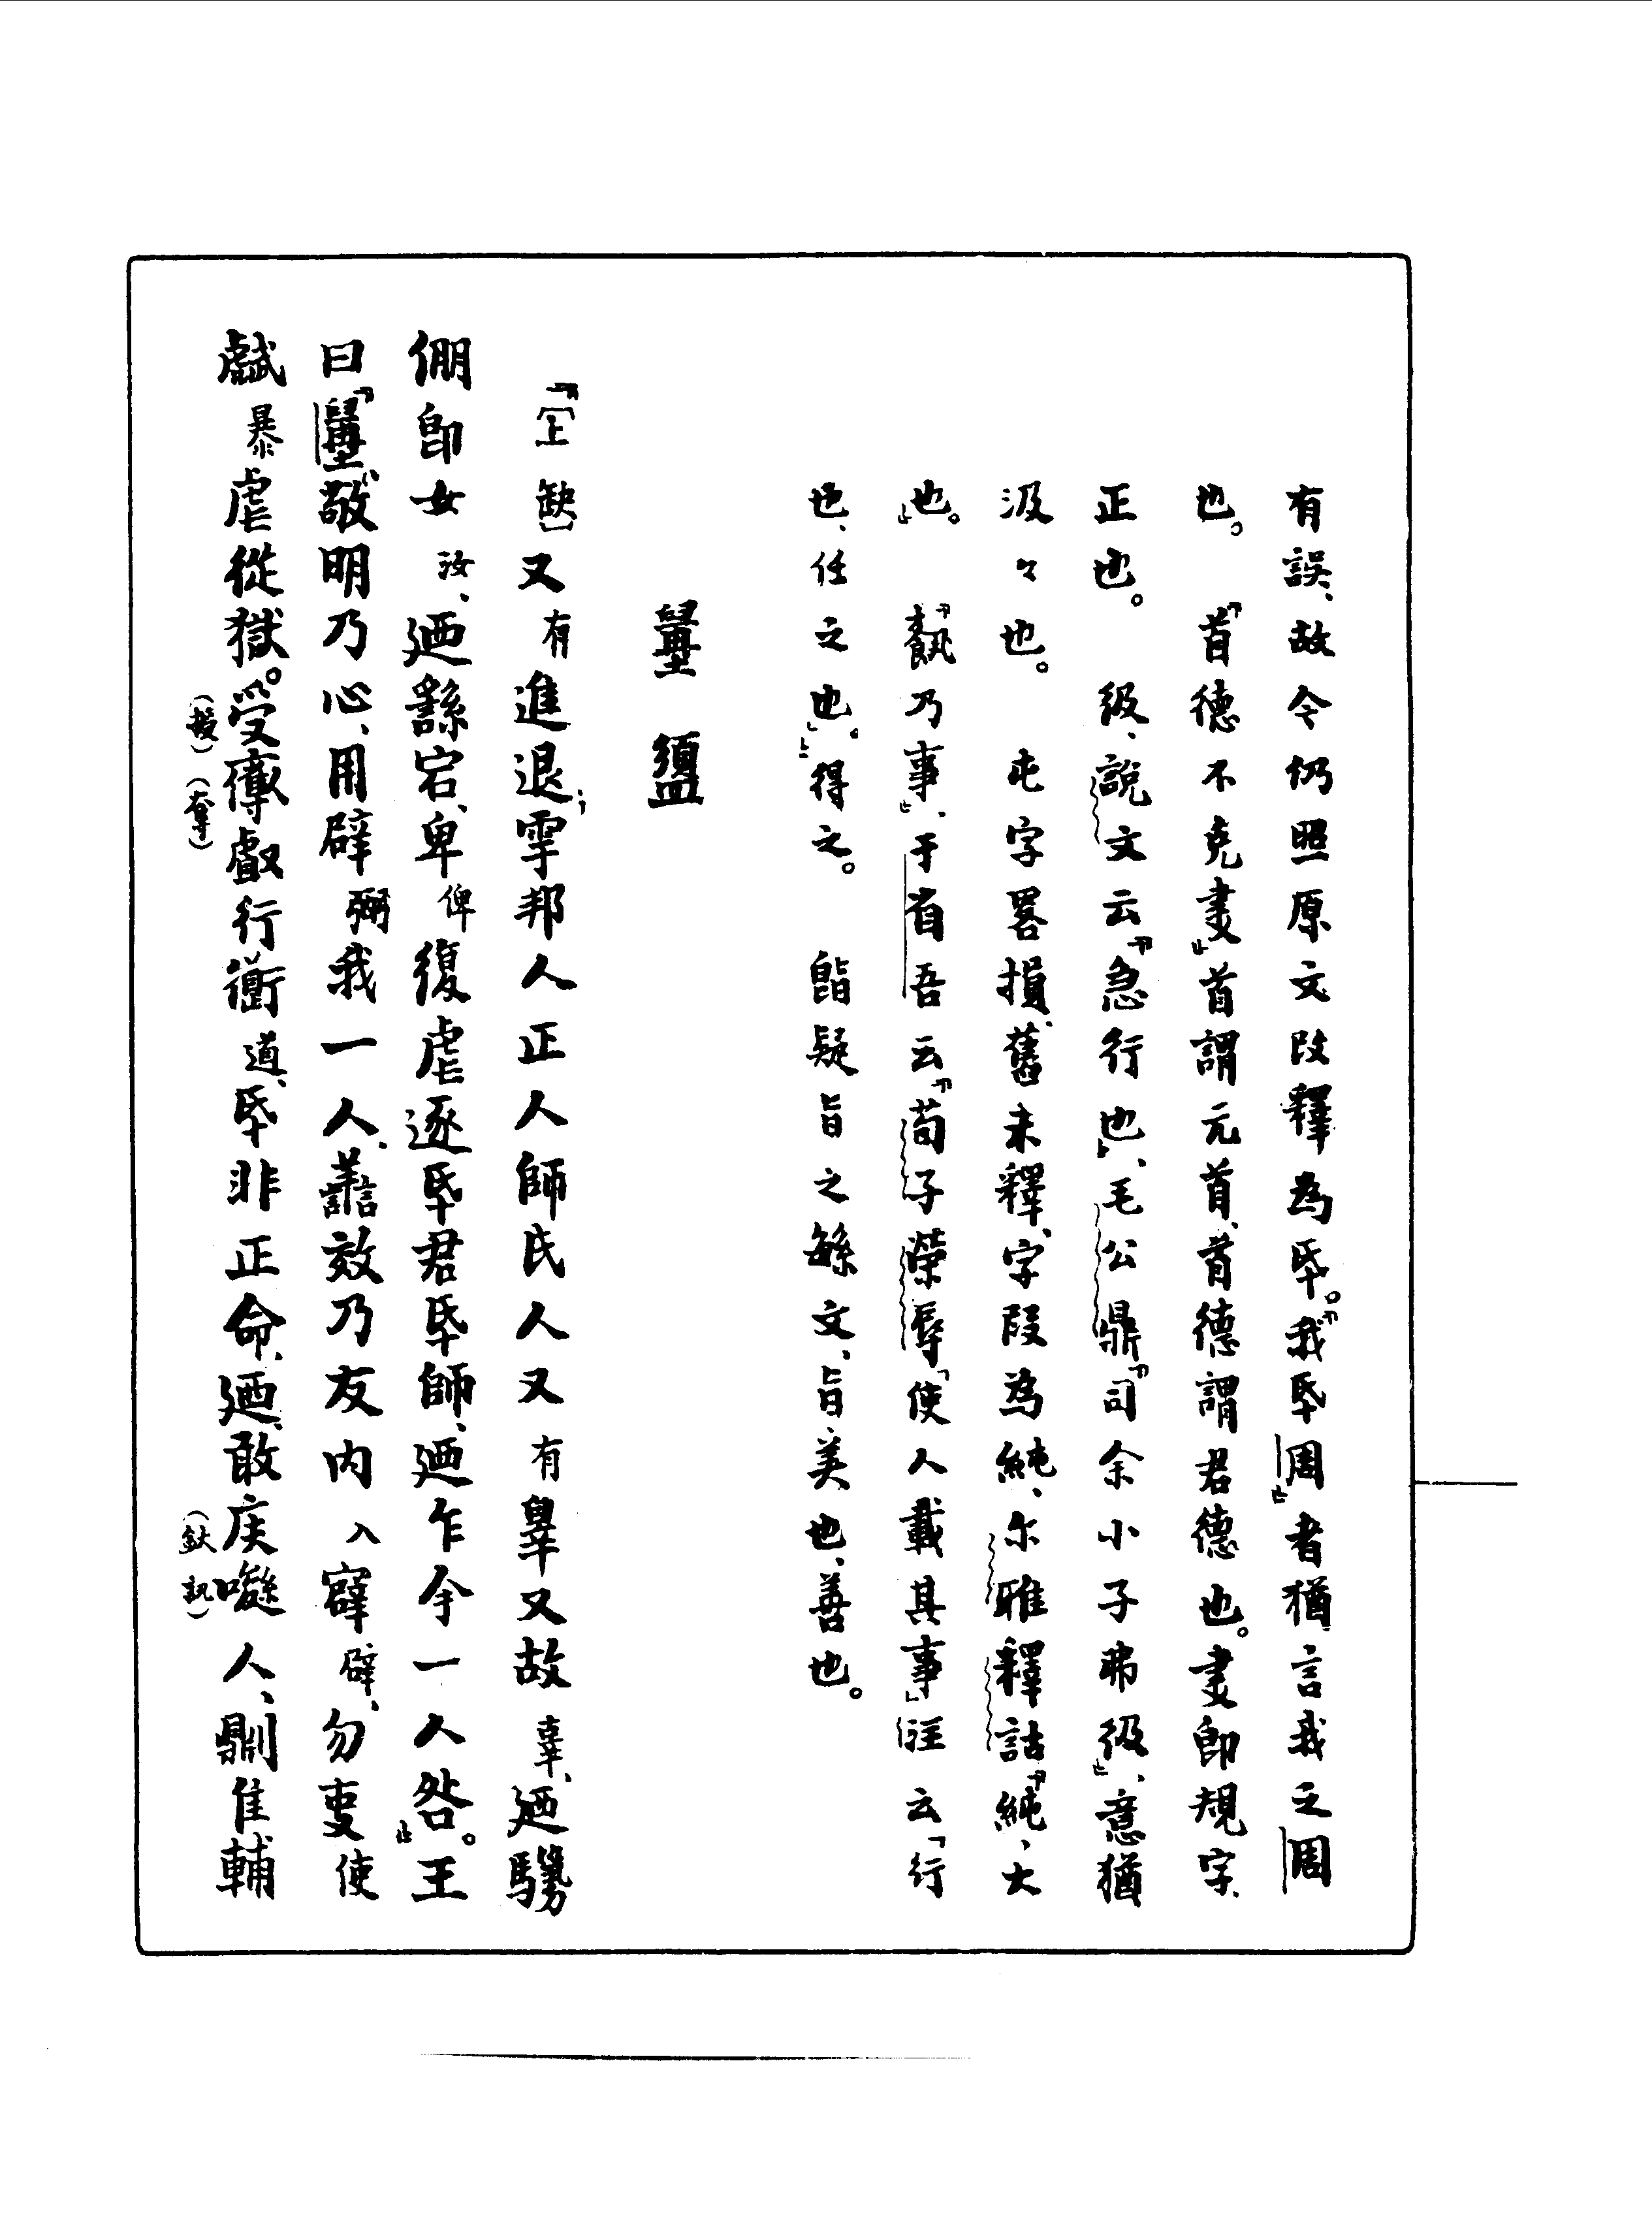 有誤、故今仍照原文改釋為氒。「我氒周」者猶言我之周
也。「首德不克㚅」首謂元首、首德謂君德也。㚅即規字、
正也。級、說文云「急行也」、毛公鼎「司余小子弗彶」、意猶
汲々也。屯字畧損、舊未釋、字叚為純、尔雅釋詁「純、大
也。」「𩞁乃事」、于省吾云「荀子榮辱「使人載其事」注云「行
也、任之也」。」得之。䭫疑旨之緐文、旨、美也、善也。
盨
「〔上缺〕又有進退；雩邦人正人師氏人又有辠又故辜、廼
倗卽女汝、廼繇宕、卑俾復虐逐氒君氒師、廼乍余一人咎。」王
曰「敬明乃心、用辟弼我一人、譱效乃友內入辟、勿事使
虣暴虐從獄。受(授)(奪)𠭯行衟道、氒非正命、廼敢疾訊人、則隹輔